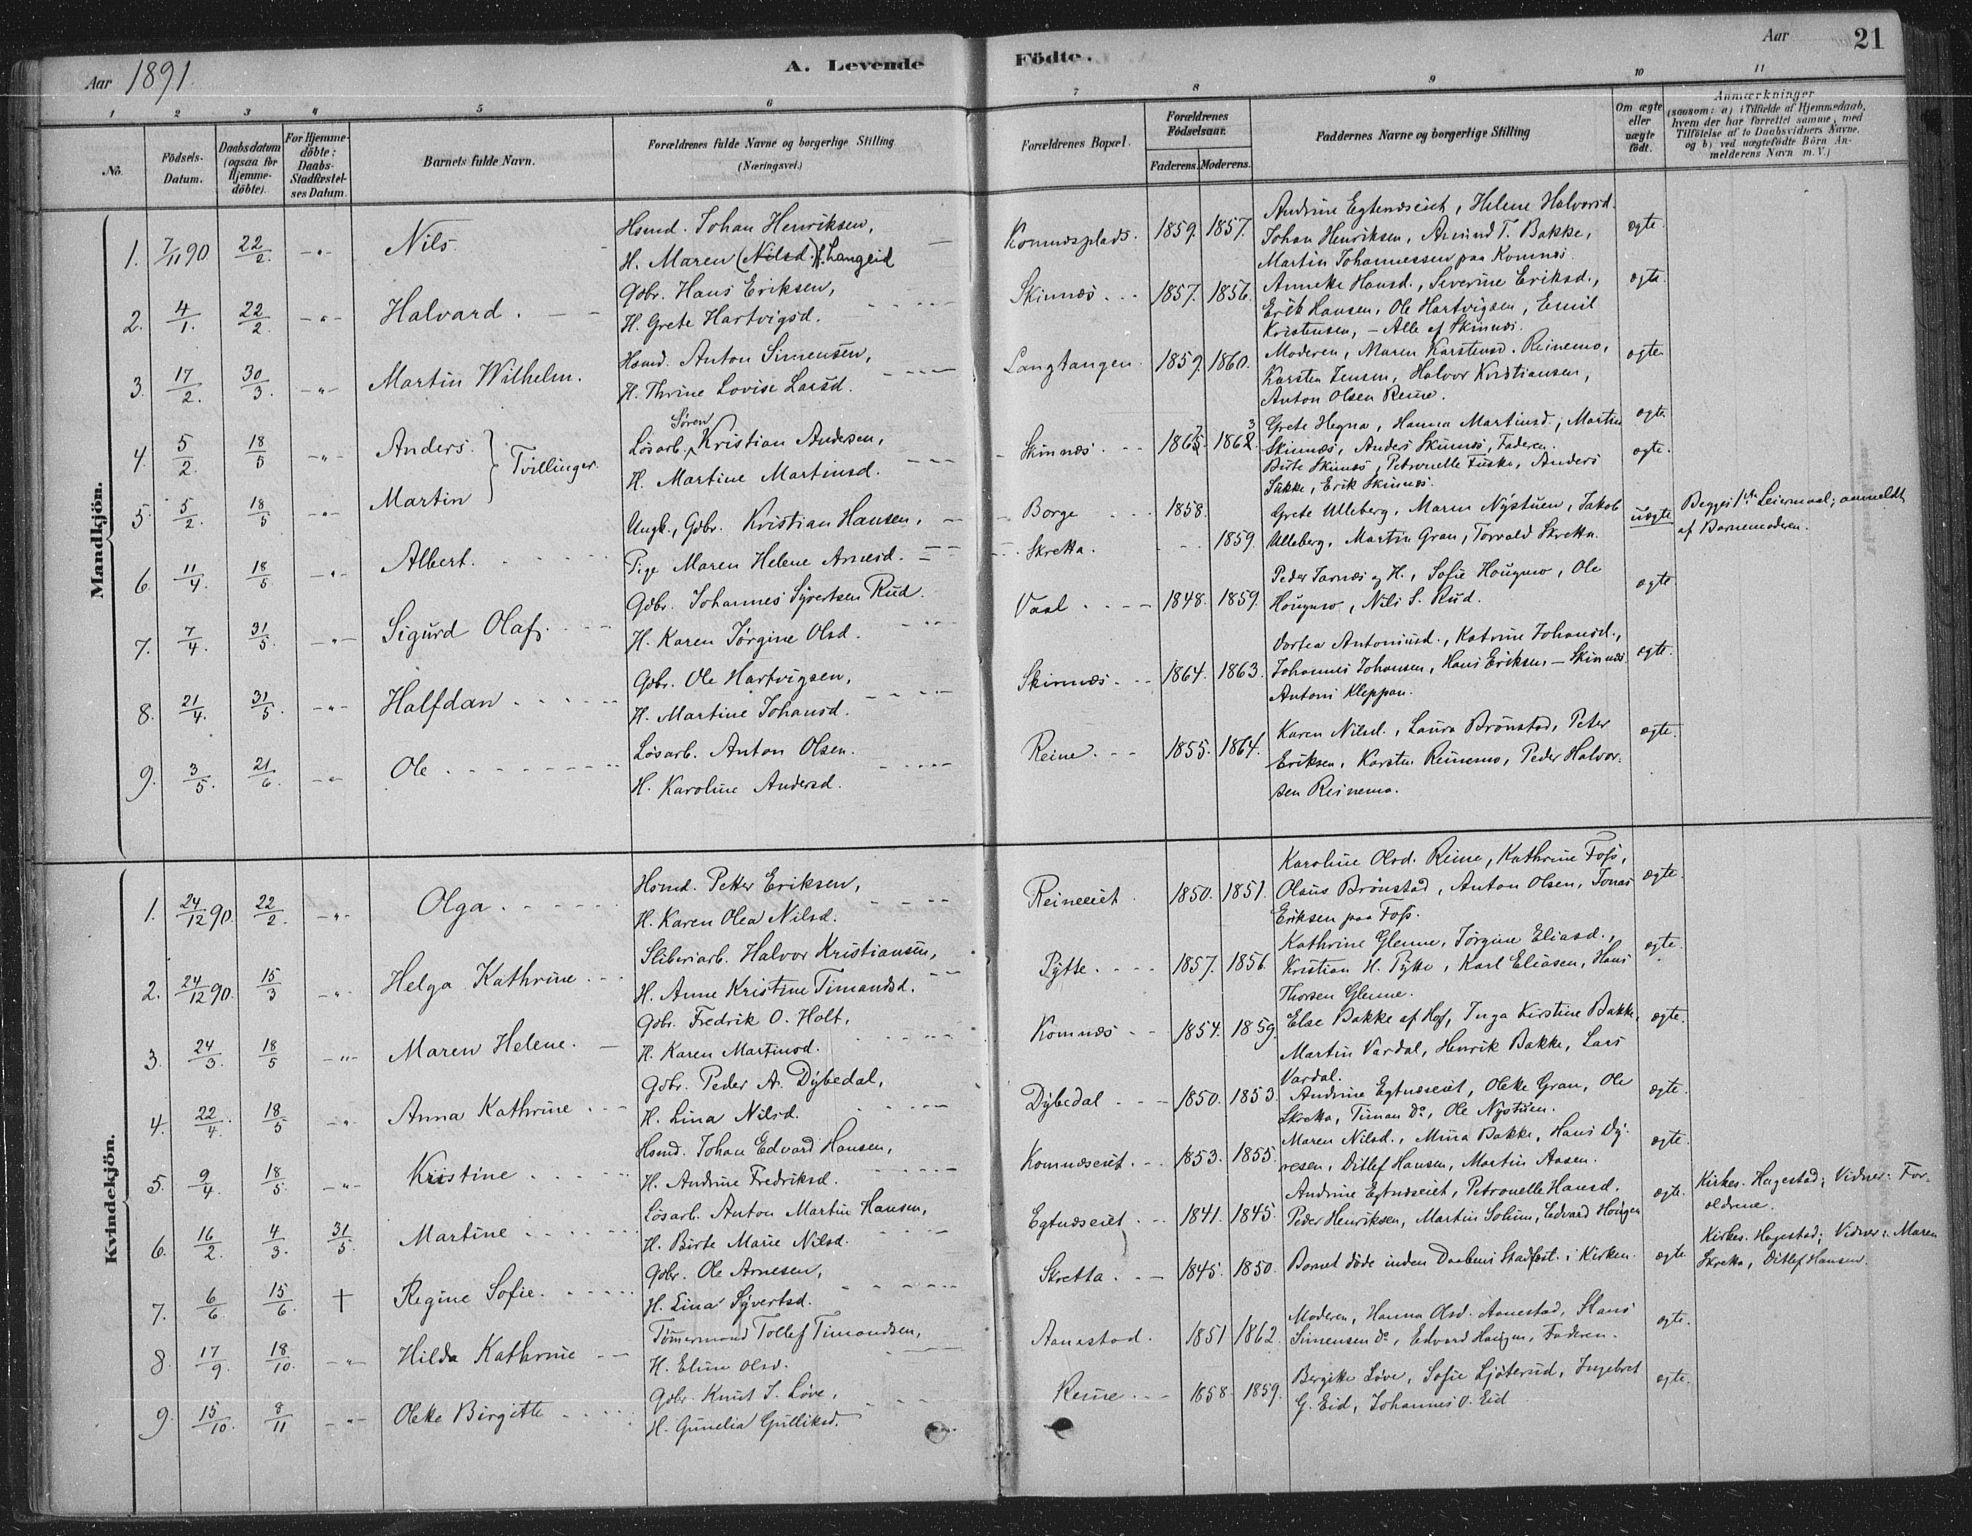 Aar 1891. A. Levende Födte. Aar 21
1 2 3 4 5 6 7 8 9 10 11
No. Födsels-Datum. Daabsdatum (ogsaa for Hjemmedöbte). For Hjemmedöbte: Daabs-Stadfæstelses Datum. Barnets fulde Navn. Forældrenes fulde Navne og borgerlige Stilling (Næringsvei.) Forældrenes Bopæl. Forældrenes Födselsaar. Faderens. Moderens. Faddernes Navne og borgerlige Stilling Om ægte eller uægte födt. Anmærkninger (saasom: a) i Tilfælde af Hjemmedaab, hvem der har forrettet samme, med Tilföielse af to Daabsvidners Navne, og b) ved uægtefödte Börn Anmelderens Navn m. V.)
Mandkjön.
1. 7/11 90 22/2 -"- Nils Hsmd. Johan Henriksen, H. Maren (Nilsd.) f. Langeid Komnæsplads. 1859. 1857. Andrine Egtenæseiet, Helene Halvorsd. Johan Henriksen, Amund T. Bakke, Martin Johannessen paa Komnæs. ægte.
2. 4/1. 22/2. -"- Halvard. Gdbr. Hans Eriksen, H. Grete Hartvigsd. Skinnæs 1857. 1856. Anneke Hansd., Severine Eriksd., Erik Hansen, Ole Hartvigsen, Emil Kristensen, - Alle af Skinnæs. ægte.
3. 17/2. 30/3. -"- Martin Wilhelm. Hsmd. Anton Simensen, H. Thrine Lovise Larsd. Langtangen. 1859. 1860. Moderen, Maren Karstensd. Reinemo, Karsten Jensen, Halvor Kristiansen, Anton Olsen Reine. ægte.
4. 5/2. 18/5 -"- Anders. } Tvillinger. Løsarb. Søren Kristian Andersen, H. Martine Martinsd. Skinnæs. 1863 Grete Hegna, Hanna Martinsd, Martin Skinnæs, Anders Skinnæs, Faderen. ægte.
5. 5/2. 18/5 -"- Martin Birte Skinnæs, Petronelle Fuske, Anders Sukke, Erik Skinnæs. ægte.
6. 11/4. 18/5. -"- Albert. Ungk., Gdbr. Kristian Hansen, Pige Maren Helene Arnesd. Borge 1858. Skretta. 1859. Grete Ulleberg, Maren Nystuen, Jakob Ulleberg, Martin Gran, Torvald Skretta. uægte Begges 1ste Leiermaal; anmeldt af Barnemoderen.
7. 7/4 31/5. -"- Sigurd Olaf. Gdbr. Johannes Syvertsen Rud. H. Karen Jørgine Olsd. Vaal 1848. 1859. Peder Jarnæs og H., Sofie Hougmo, Ole Hougmo, Nils S. Rud. ægte
8. 21/4. 31/5. -"- Halfdan Gdbr. Ole Hartvigsen, H. Martine Johansd. Skinnæs. 1864. 1863. Dortea Antoniusd., Katrine Johansd., Johannes Johansen, Hans Eriksen - Skinnæs Antoni Kleppan. ægte.
9. 3/5. 21/6. -"- Ole Løsarb. Anton Olsen. H. Karoline Andersd. Reine. 1855. 1864. Karen Nilsd., Laura Brønstad, Peter Eriksen, Karsten Reinemo, Peder Halvorsen Reinemo. ægte.
Kvindekjön.
1. 24/12 90. 22/2. -"- Olga Hsmd. Petter Eriksen, H. Karen Olea Nilsd. Reineeiet. 1850. 1851. Karoline Olsd. Reine, Kathrine Foss, Olaus Brønstad, Anton Olsen, Jonas Eriksen paa Foss. ægte.
2. 24/12 90. 15/3 -"- Helga Kathrine Sliberiarb. Halvor Kristiansen, H. Anne Kristine Timandsd. Pytte. 1857. 1856. Kathrine Glenne, Jørgine Eliasd., Kristian H. Pytte, Karl Eliasen, Hans Thorsen Glenne. ægte.
3. 24/3. 18/5 -"- Maren Helene. Gdbr. Fredrik O. Holt, H. Karen Martinsd. Komnæs 1854. 1859. Else Bakke af Hof, Inga Kirstine Bakke, Martin Vardal, Henrik Bakke, Lars Vardal. ægte.
4. 22/4. 18/5 -"- Anna Kathrine Gdbr. Peder A. Dybedal, H. Lina Nilsd. Dybedal 1850. 1853. Andrine Egtnæseiet, Oleke Gran, Ole Skretta, Timan Do., Ole Nystuen. ægte.
5. 9/4 18/5. -"- Kristine Hsmd. Johan Edvard Hansen, H. Andrine Fredriksd. Komnæseiet. 1853. 1855. Maren Nilsd., Mina Bakke, Hans Dyresen, Ditlef Hansen, Martin Aasen. ægte.
6. 16/2. 4/3. 31/5. Martine Løsarb. Anton Martin Hansen, H. Birte Marie Nilsd. Egtnæseiet. 1841. 1845. Andrine Egtnæseiet, Petronelle Hansd. Peder Henriksen, Martin Solum, Edvard Hougen ægte. Kirkes. Hagestad; Vidner: Forældrene.
7. 6/6 15/6. † Regine Sofie. Gdbr. Ole Arnesen, H. Lina Syvertsd. Skretta. 1845. 1850. Barnet døde inden Daabens Stadfæst. i Kirken. ægte Kirkes. Hagestad; Vidner: Maren Skretta, Ditlef Hansen.
8. 17/9 18/10. -"- Hilda Kathrine Tømmermand Tollef Timandsen, H. Eline Olsd. Aanestad. 1851 1862. Moderen, Hanna Olsd. Aanestad, Hans Simensen Do, Edvard Haugen, Faderen. ægte.
9. 15/10. 8/11 -"- Oleke Birgitte Gdbr. Knut J. Løve, H. Gunelia Gulliksd. Reine 1858. 1859. Bergitte Løve, Sofie Ljøterud, Ingebret G. Eid, Johannes O. Eid ægte.